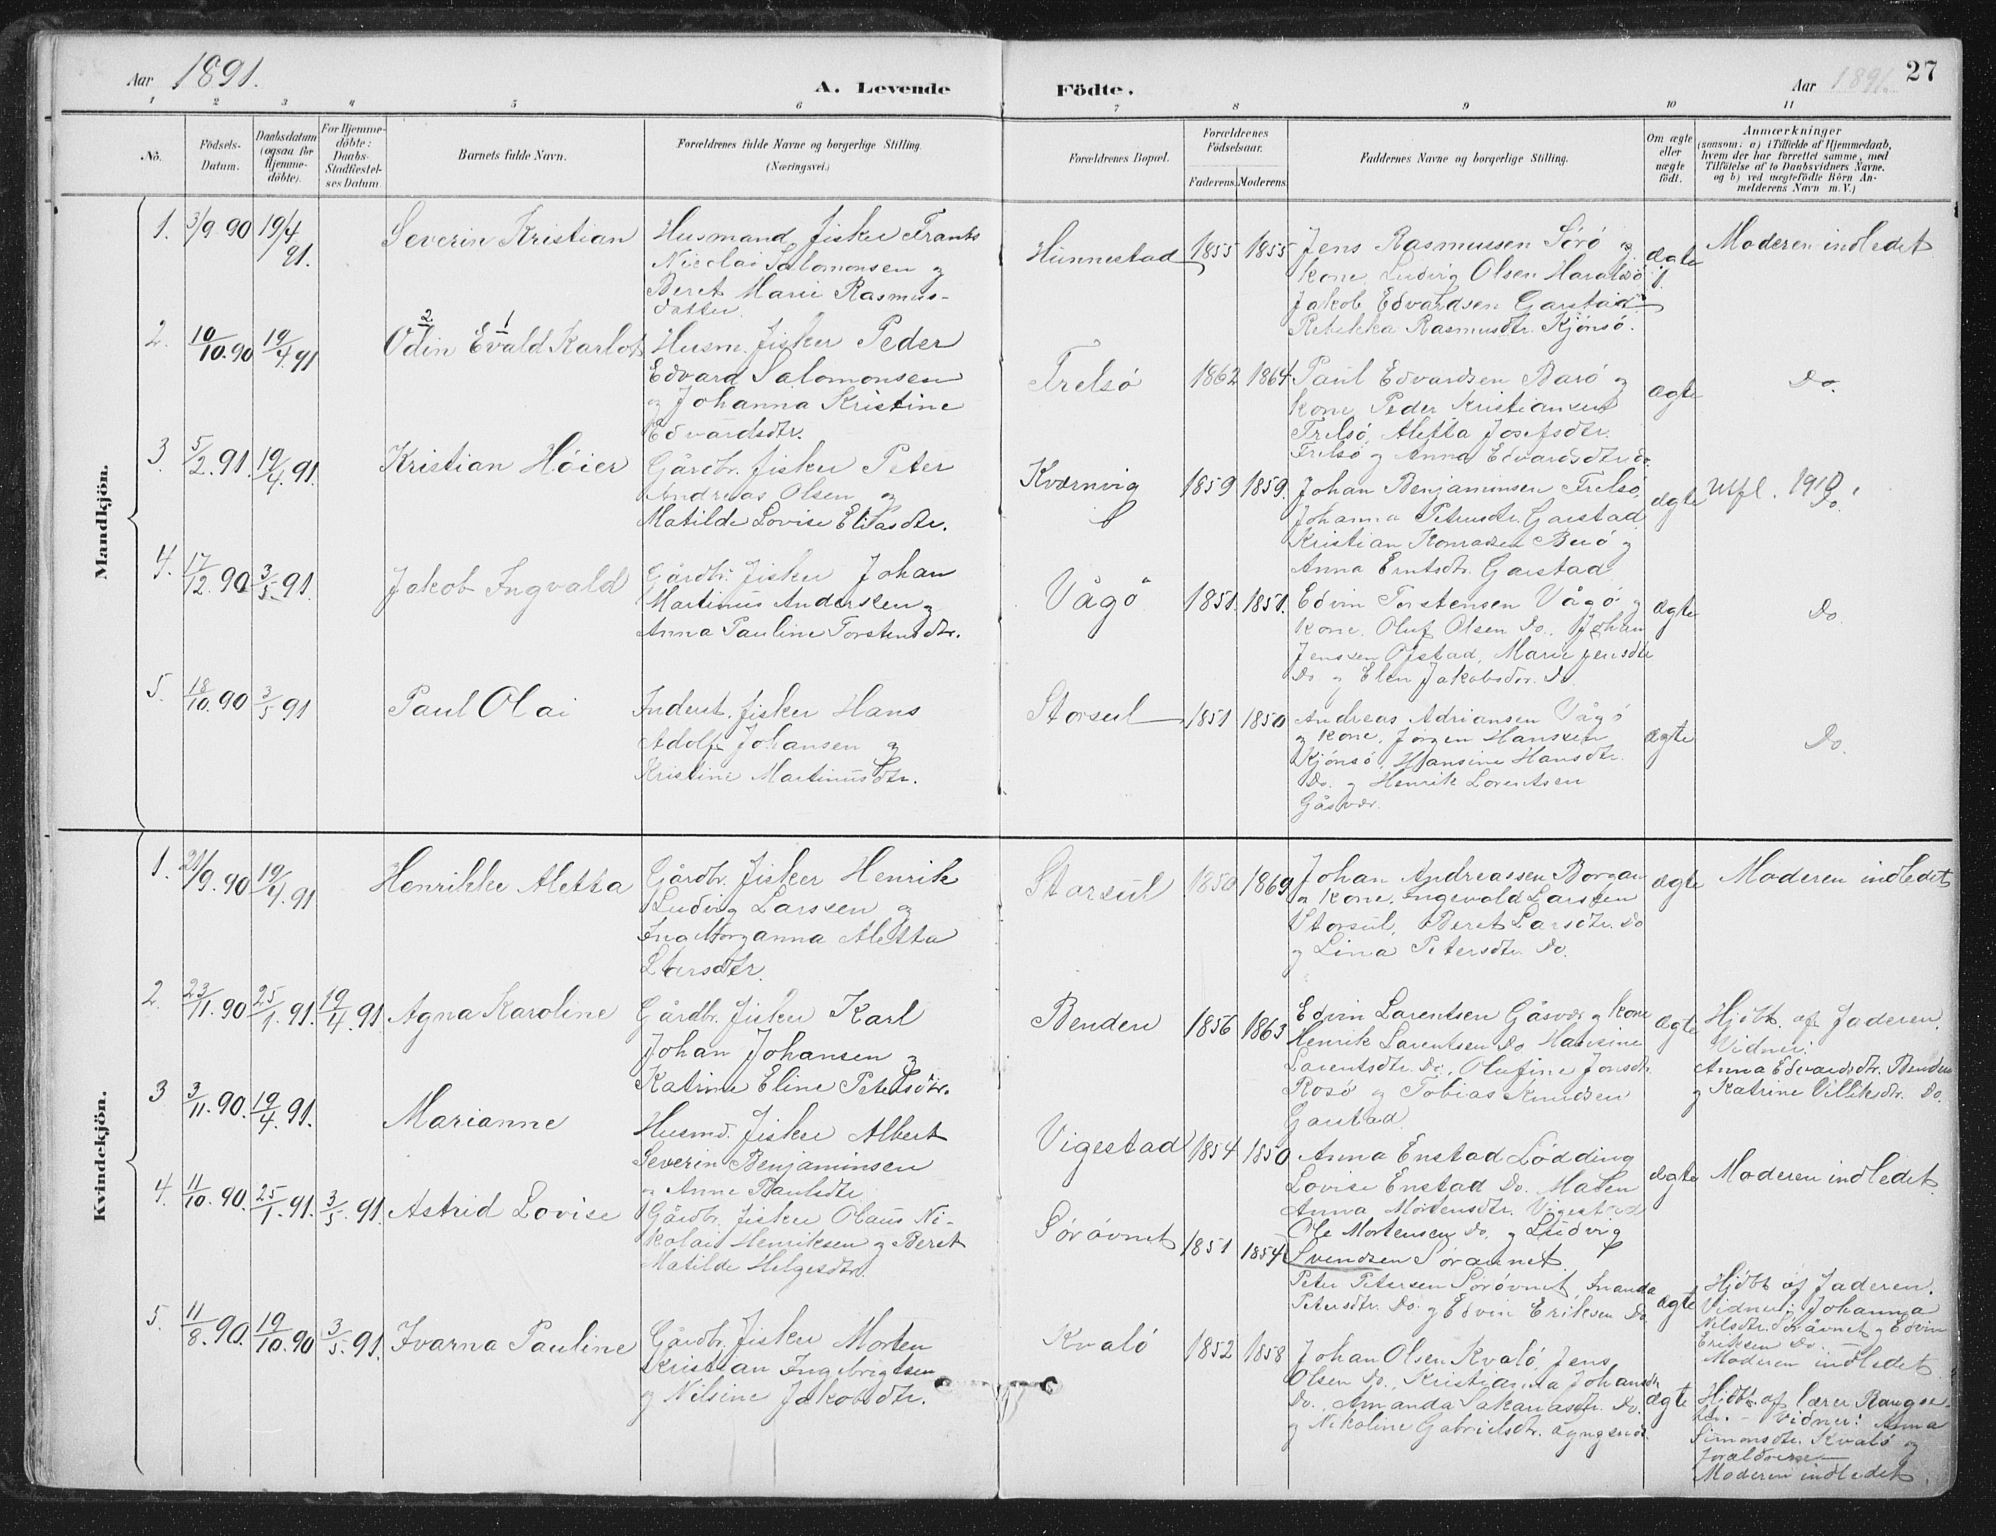 Aar 1891. A. Levende Födte. Aar 1891. 27
1 2 3 4 5 6 7 8 9 10 11
No. Födsels-Datum. Daabsdatum (ogsaa for Hjemme-döbte). For Hjemme-döbte: Daabs-Stadfæstel-ses Datum Barnets fulde Navn. Forældrenes fulde Navne og borgerlige Stilling. (Næringsvei.) Forældrenes Bopæl. Forældrenes Födselsaar. Faderens. Moderens. Faddernes Navne og borgerlige Stilling. Om ægte eller uægte födt. Anmærkninger
(saasom: a) i Tilfælde af Hjemmedaab, hvem der har forrettet samme, med Tilföielse af to Daabsvidners Navne. og b) ved uægtefödte Börn An-melderens Navn m. V.)
Mandkjön.
1. 3/9 90 19/4 91. Severin Kristian
Husmand, fisker Frants
Nicolai Salomonsen og
Beret Marie Rasmus-
datter.
Hunnestad 1855 1855
Jens Rasmussen Sörö og
kone, Ludvig Olsen Haralsö
Jakob Edvardsen Garstad
Rebekka Rasmusdtr. Kjönsö.
ægte Moderen indledet
2. 10/10.90 19/4 91 Odin Evald Karlot
2 1
Husm. fisker Peder
Edvard Salomonsen
og Johanna Kristine
Edvardsdtr.
Frelsö 1862 1864
Paul Edvardsen Barö og
kone, Peder Kristiansen
Frelsö, Aletta Josefsdtr.
Frelsö og Anna Edvardsdtr do.
ægte Do.
3. 5/2.91. 19/4.91. Kristian Höier
Gårdbr. fisker Peter
Andreas Olsen og
Matilde Lovise Eliasdtr.
Kværnvig 1859 1859.
Johan Benjaminsen Frelsö,
Johanna Petrusdtr. Garstad
Kristian Konradsen Berö og
Anna Erntsdtr. Garstad
ægte Utfl. 1910. Do.
4. 17/12.90 3/5.91. Jakob Ingvald
Gårdbr. fisker Johan
Martinus Andersen og
Anna Pauline Torstensdtr.
Vågö 1851. 1851.
Edvin Torstensen Vågö og
kone, Oluf Olsen Do., Johan
Jenssen Ofstad, Marie Jensdtr
Do. og Elen Jakobsdtr. Do
ægte Do.
5. 18/10.90 3/5 91 Paul Olai
Inderst, fisker Hans
Adolf Johansen og
Kristine Martinusdtr.
Storsul 1851 1850
Andreas Adriansen Vågö
og kone, Jörgen Hanssen
Kjönsö, Hansine Hansdtr.
Do. og Henrik Lorentsen
Gåsvær.
ægte Do.
Kvindekjön.
1. 21/9.90 19/4.91 Henrikke Aletta
Gårdbr. fisker Henrik
Ludvig Larssen og
Ingeborganna Aletta
Larsdtr.
Storsul 1850 1869
Johan Andreassen Borgan
og kone, Ingevald Larssen
Storsul, Beret Larsdtr. Do
og Lina Petersdtr Do.
ægte Moderen indledet
2. 23/11.90 25/1.91. 19/4.91 Agna Karoline
Gårdbr. fisker Karl
Johan Johansen og
Katrine Eline Petersdtr.
Benden 1856 1863
Edvin Larentsen Gåsvær og kone
Henrik Larentsen Do Hansine
Larentsdtr. Do., Olufine Jonsdtr.
Rosö og Tobias Knudsen
Garstad.
ægte Hjdbt. af Faderen.
Vidner:
Anna Edvardsdtr. Benden
og Katrine Villiksdtr. Do.
3 3/11.90. 19/4.91. Marianne
Husmd. fisker Albert
Severin Benjaminsen
og Anne Paulsdtr.
Vigestad 1854 1850
Anna Enstad Lödding
Lovise Enstad Do. Maren
Anna Mortensdtr. Vigestad
Ole Mortensen Do. og Ludvig
Svendsen Sörövnet
ægte Moderen indledet.
4. 11/10.90. 25/1.91. 3/5.91. Astrid Lovise
Gårdbr. fisker Olaus Ni-
kolai Henriksen og Beret
Matilde Helgesdtr.
Sörövnet 1851 1854
Peter Petersen Sörövnet,
Petersdtr. Do. og Edvin Eriksen Do.
ægte Hjdbt af Faderen.
Vidner: Johanna
Nilsdtr. Sörövnet og Edvin
Eriksen Do.
Moderen indledet
5. 11/8.90. 19/10.90 3/5.91. Ivarna Pauline
Gårdbr. fisker Morten
Kristian Ingebrigtsen
og Nilsine Jakobsdtr.
Kvalö 1852 1858
Johan Olsen Kvalö, Jens
Olsen Do., Kristianna Johansdtr.
Do., Amanda Sakariasdtr. Do.
og Nikoline Gabrielsdtr.
ægte Hjdbt. af lærer
Vidner: Anna
Simonsdtr. Kvalö og
Forældrene
Moderen indledet.